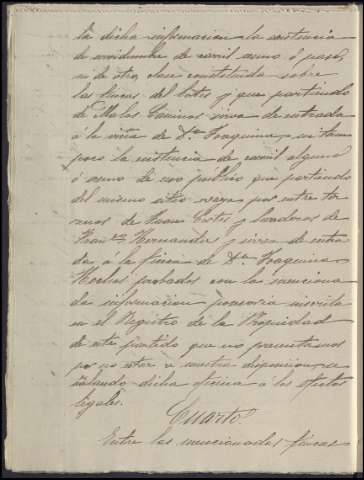 la dicha informacion la existencia
de servidumbre de carril alguno ó paso,
ni de otra clase constituida sobre
las fincas del Cortes y que partiendo
de Malos Caminos sirva de entrada
á la viña de Dª Joaquina, ni tam
poco la existencia de carril alguno
ó camino de uso público que partiendo
del mismo sitio vaya por entre te
rrenos de Juan Cortes y herederos de
Franco Hernandez y sirva de entra
da á la finca de Dª Joaquina.
Hechos probados con la menciona
da informacion posesoria inscrita
en el Registro de la Propiedad
de este partido que no presentamos
por no estar á nuestra disposicion, se
ñalando dicha oficina á los efectos
legales.
Cuarto.
Entre las mencionadas fincas